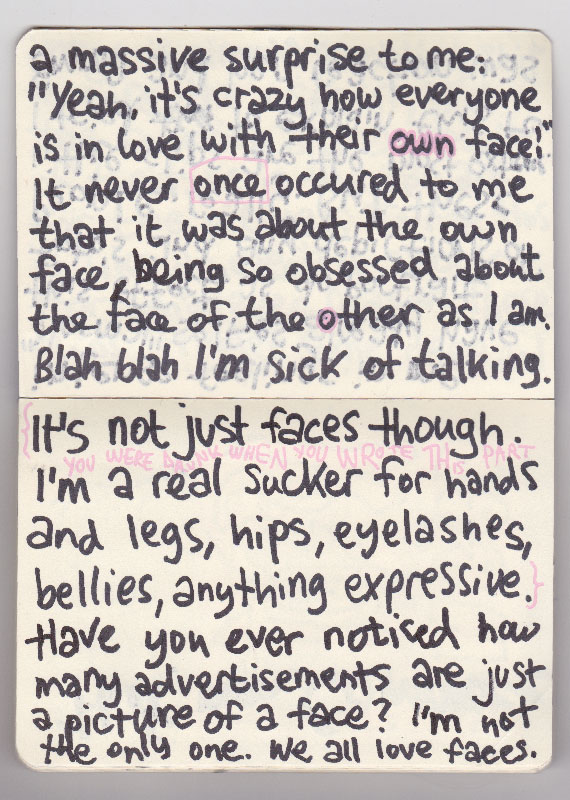 a massive surprise to me:
"Yeah, it's crazy how everyone
is in love with their own face!"
It never once occured to me
that it was about the own
face, being so obsessed about
the face of the other as I am.
Blah blah I'm sick of talking.
It's not just faces though
YOU WERE DRUNK WHEN YOU WROTE THIS PART
I'm a real sucker for hands
and legs, hips, eyelashes,
bellies, anything expressive.
Have you ever noticed how
many advertisements are just
a picture of a face? I'm not
the only one. We all love faces.